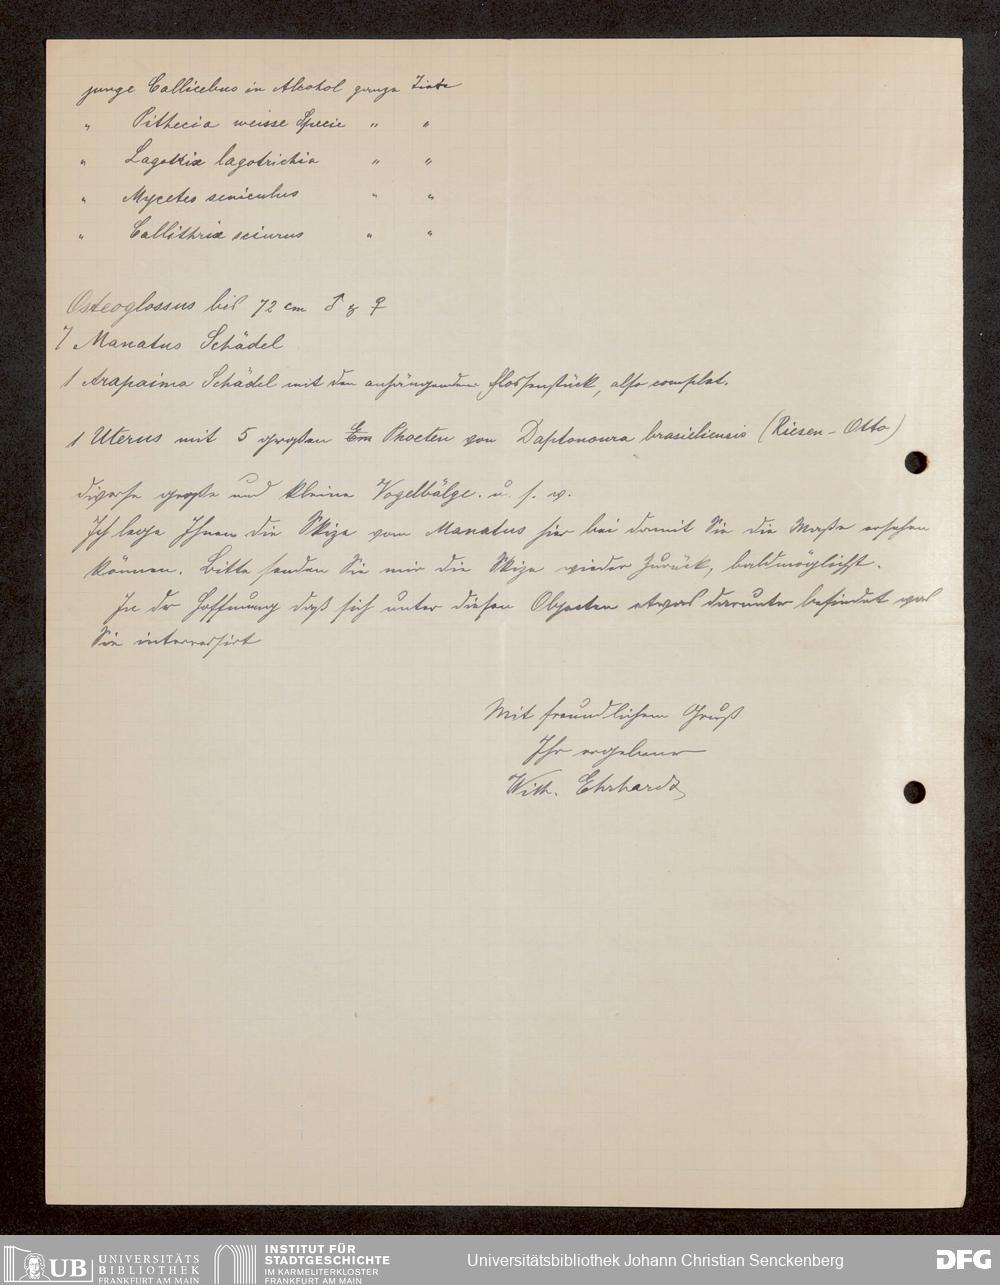 junge Callicebus in Alcohol ganze Tiere
" Pithecia weisse Specie " "
" Lagotrix lagotrichia " "
" Mycetes seniculus " "
" Callithrix sciurus " "
Osteoglossus bis 72 cm ♂ & ♀
7 Manatus Schädel
1 Arapaima Schädel mit den anhängenden Flossenstück, also complet.
1 Uterus mit 5 großen Em Phoeten von Daptonoura brasieliensis (Riesen-Otto)
diverse große und kleine Vogelbälge. u. s. w.
Ich lege Ihnen die Skize vom Manatus hier bei damit Sie die Maße ersehen
können. Bitte senden Sie mir die Skize wieder zurück, baldmöglichst.
In der Hoffnung daß sich unter diesen Objecten etwas darunter befindet was
Sie interressirt
Mit freundlichem Gruß
Ihr ergebener
Wilh. Ehrhardt
UB UNIVERSITÄTS
BIBLIOTHEK
FRANKFURT AM MAIN
INSTITUT FÜR
STADTGESCHICHTE
IM KARMELITERKLOSTER
FRANKFURT AM MAIN
Universitätsbibliothek Johann Christian Senckenberg
DFG